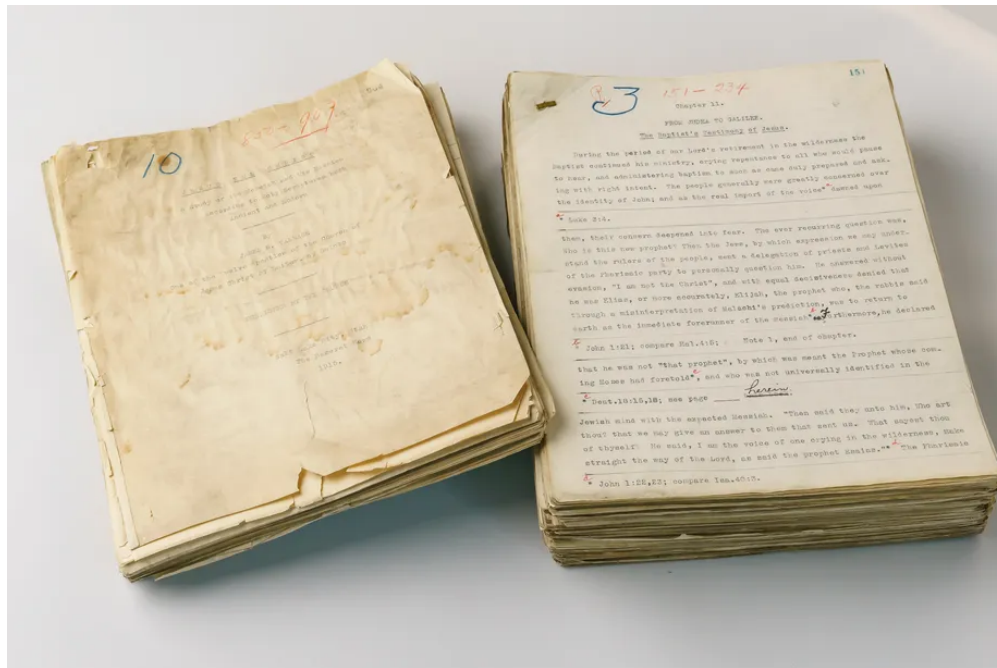 10
JESUS THE CHRIST
A Study of the Messiah and His Mission
according to Holy Scriptures both
Ancient and Modern
By
James E. Talmage
One of the Twelve Apostles of the Church of
Jesus Christ of Latter-day Saints
Published by the Church
Salt Lake City, Utah
The Deseret News
1915.
3
151 - 234
151
Chapter 11.
FROM JUDEA TO GALILEE.
The Baptist's Testimony of Jesus.
During the period of our Lord's retirement in the wilderness the
Baptist continued his ministry, crying repentance to all who would pause
to hear, and administering baptism to such as came duly prepared and ask-
ing with right intent. The people generally were greatly concerned over
the identity of John; and as the real import of the voice* dawned upon
* Luke 3:4.
them, their concern deepened into fear. The ever recurring question was,
Who is this new prophet? Then the Jews, by which expression we may under-
stand the rulers of the people, sent a delegation of priests and Levites
of the Pharisaic party to personally question him. He answered without
evasion, "I am not the Christ", and with equal decisiveness denied that
he was Elias, or more accurately, Elijah, the prophet who, the rabbis said
through a misinterpretation of Malachi's prediction, was to return to
earth as the immediate forerunner of the Messiah*. Furthermore, he declared
* John 1:21; compare Mal.4:5; Note 1, end of chapter.
that he was not "that prophet", by which was meant the Prophet whose com-
ing Moses had foretold*, and who was not universally identified in the
* Deut.18:15,18; see page ____ herein.
Jewish mind with the expected Messiah. "Then said they unto him, Who art
thou? that we may give an answer to them that sent us. What sayest thou
of thyself? He said, I am the voice of one crying in the wilderness, Make
straight the way of the Lord, as said the prophet Esaias."* The Pharisaic
* John 1:22,23; compare Isa.40:3.